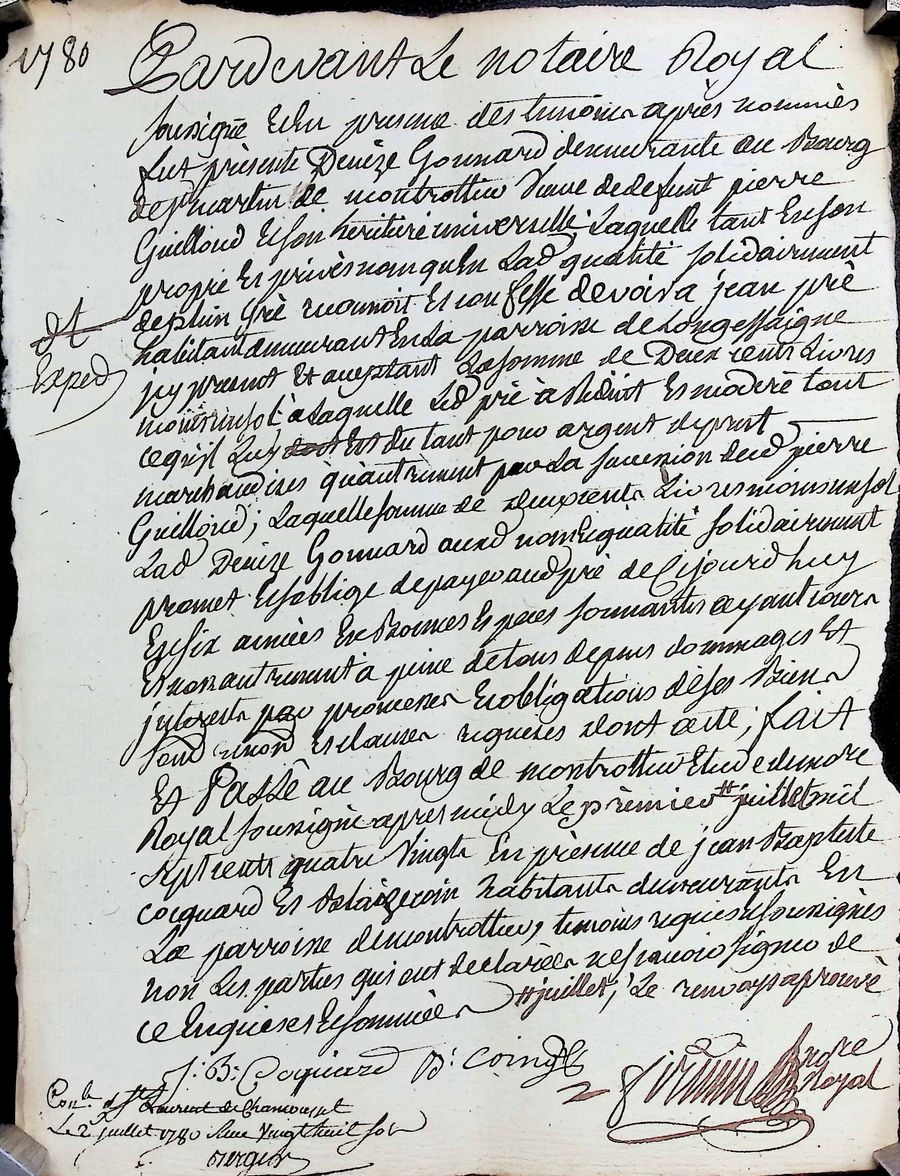 1780
Pardevant Le notaire Royal
soussigné Et En presence des temoins après nommés
fut présente Denize Gonnard demeurante au Bourg
de St martin de montrottier Veuve de defunt pierre
Guilloud Et son héritière universelle: Laquelle tant En son
propre Et privés nom qu'En Lad qualité solidairement
de plein Gré reconnoit Et confesse devoir a jean pré
habitant demeurant En La parroisse de Longessaigne
icy present Et acceptant La somme de Deux cents Livres
moins un sol a Laquelle Led pré à Réduit Et modéré tout
ce qu'il Luy Est du tant pour argent de prest
marchandises qu'autrement par La succession dud pierre
Guilloud; Laquelle somme de deux cents Livres moins un sol
Lad Denize Gonnard auxd noms Et qualité solidairement
promet Et s'oblige de payer aud pré de Cijourd'huy
En six années En Bonnes Especes sonnantes ayant cours
Et non autrement à peine de tous depens dommages Et
interests par promesses Et obligations de ses Biens
soud renond Et clauses requises dont acte; fait
Et Passé au Bourg de montrottier Etude du nore
Royal soussigné apres midy Le premier # juillet mil
sept cents quatre Vingts En présence de jean Baptiste
cocquard Et Blaize coin habitants demeurants En
La parroisse de montrottier, temoins requis Et soussignés
non Les parties qui ont declarées ne sçavoir signer de
ce Enquises Et sommées # juillet; Le renvoy aprouvé
dt
Exped
J: B: Coquard B: Coing
nore
Royal
Conlé à St Laurent de Chamousset
Le 2 juillet 1780 Reçu Vingt huit sols